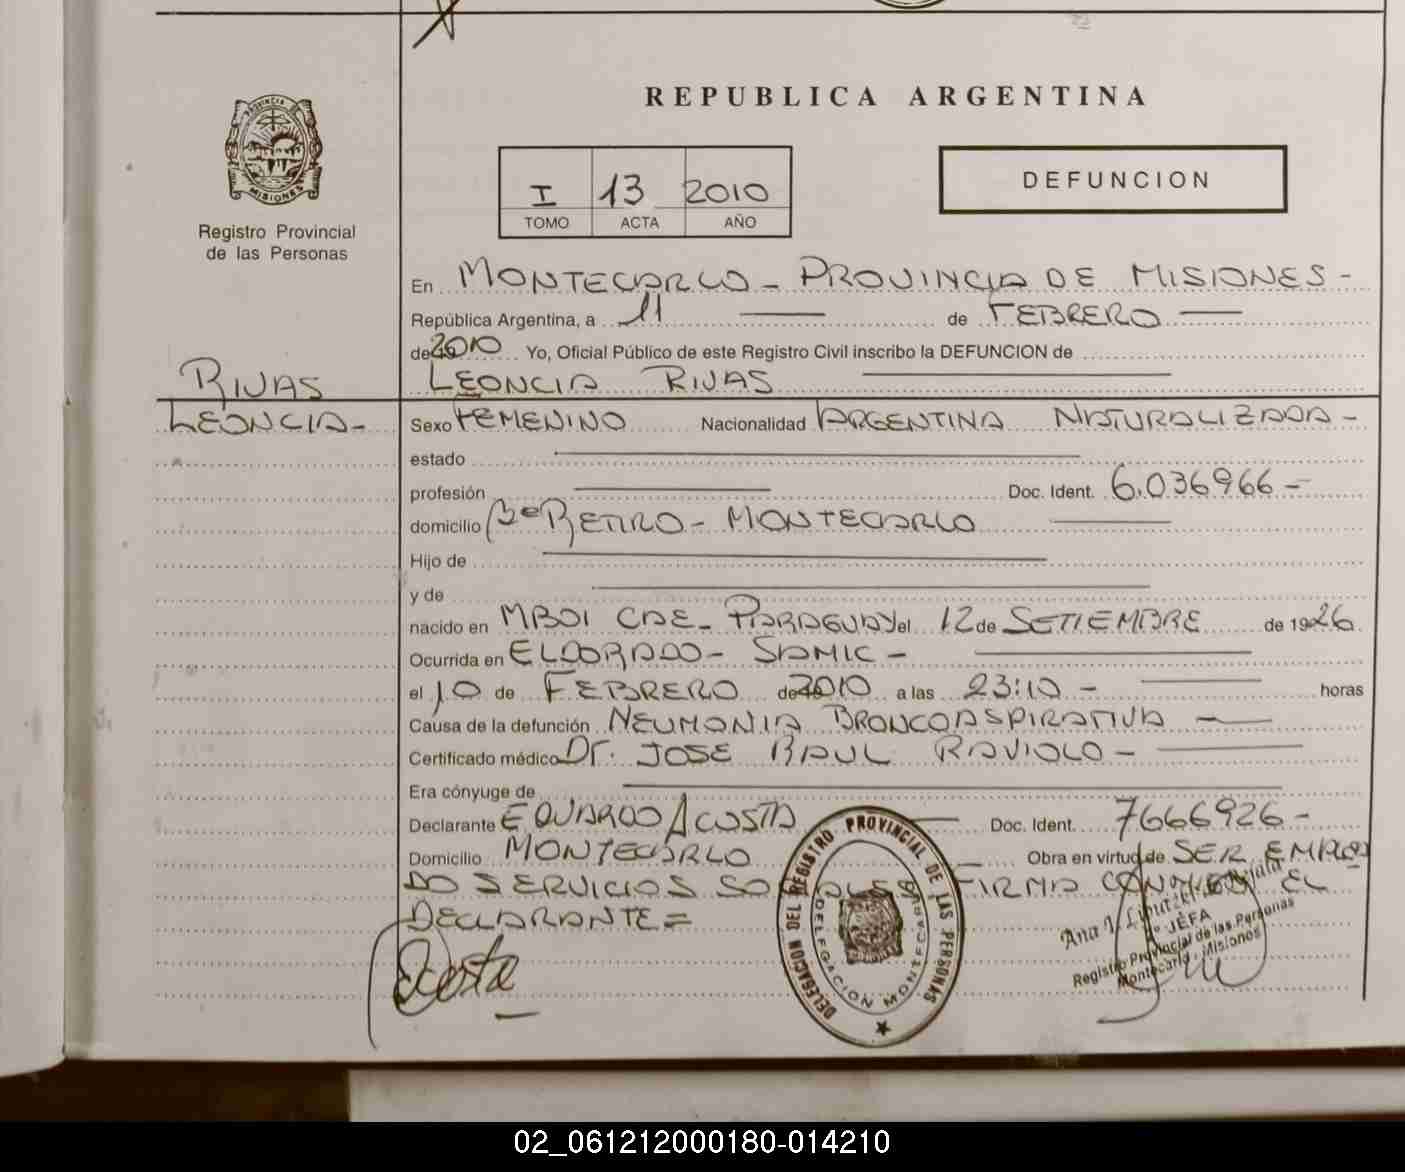 REPUBLICA ARGENTINA
PROVINCIA DE
MISIONES
Registro Provincial
de las Personas
I 13 2010
TOMO ACTA AÑO
DEFUNCION
En MONTECARLO - PROVINCIA DE MISIONES -
República Argentina, a 11 de FEBRERO
de 2010 Yo, Oficial Público de este Registro Civil inscribo la DEFUNCION de
RIVAS LEONCIA RIVAS
LEONCIA - Sexo FEMENINO Nacionalidad ARGENTINA NATURALIZADA -
estado
profesión Doc. Ident. 6.036966 -
domicilio Bº RETIRO - MONTECARLO
Hijo de
y de
nacido en MBOI CAE - PARAGUAY el 12 de SETIEMBRE de 1926
Ocurrida en ELDORADO - SAMIC -
el 10 de FEBRERO de 2010 a las 23:10 - horas
Causa de la defunción NEUMONIA BRONCOASPIRATIVA -
Certificado médico Dr. JOSE RAUL RAVIOLO -
Era cónyuge de
Declarante EDUARDO ACOSTA Doc. Ident. 7666926 -
Domicilio MONTECARLO Obra en virtud de SER EMPLEA
DO SERVICIOS SOCIALES FIRMA CONMIGO EL
DECLARANTE =
Acosta
DELEGACION DEL REGISTRO PROVINCIAL DE LAS PERSONAS
DELEGACION MONTECARLO
JEFA
Registro Provincial de las Personas
Montecarlo - Misiones
02_061212000180-014210